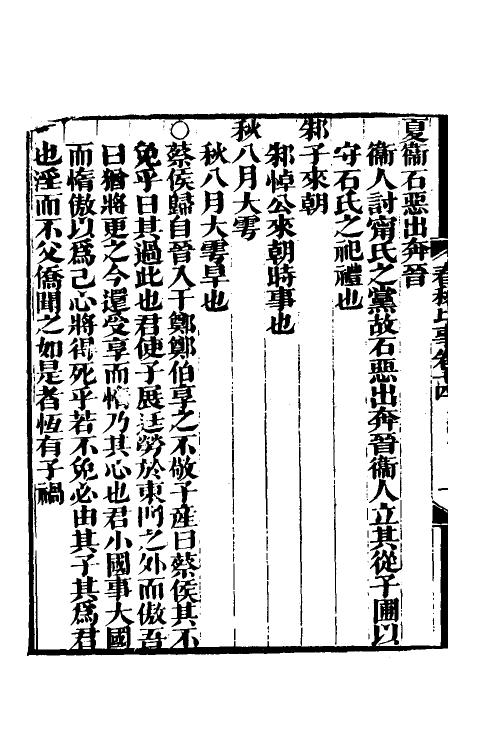 夏衞石惡出奔晉
衞人討甯氏之黨故石惡出奔晉衞人立其從子圃以
守石氏之祀禮也
邾子來朝
邾悼公來朝時事也
秋八月大雩
秋八月大雩旱也
○蔡侯歸自晉入于鄭鄭伯享之不敬子產曰蔡侯其不
免乎曰其過此也君使子展迋勞於東門之外而傲吾
曰猶將更之今還受享而惰乃其心也君小國事大國
而惰傲以爲己心將得死乎若不免必由其子其爲君
也淫而不父僑聞之如是者恆有子禍